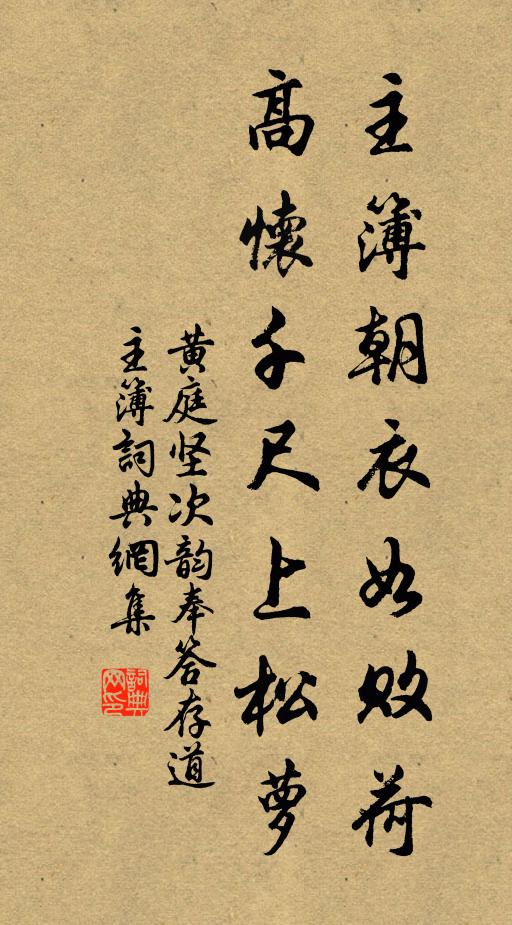 主簿朝衣如敗荷
高懷千尺上松蘿
黄庭坚次韵奉答存道
主簿詞典網集
詞典网印